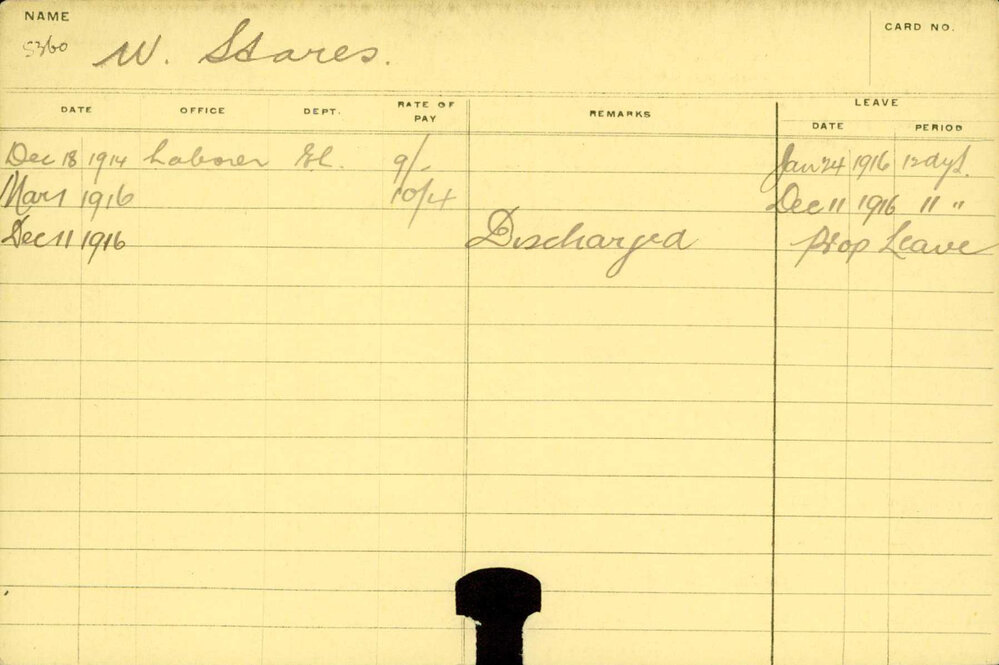 NAME
CARD NO.
5360 W. Stares.
DATE OFFICE DEPT. RATE OF PAY REMARKS LEAVE
DATE PERIOD
Dec 18 1914 Laborer El. 9/- Jan 24 1916 12 dys.
Mar 1 1916 10/4 Dec 11 1916 11 "
Dec 11 1916 Discharged Prop Leave